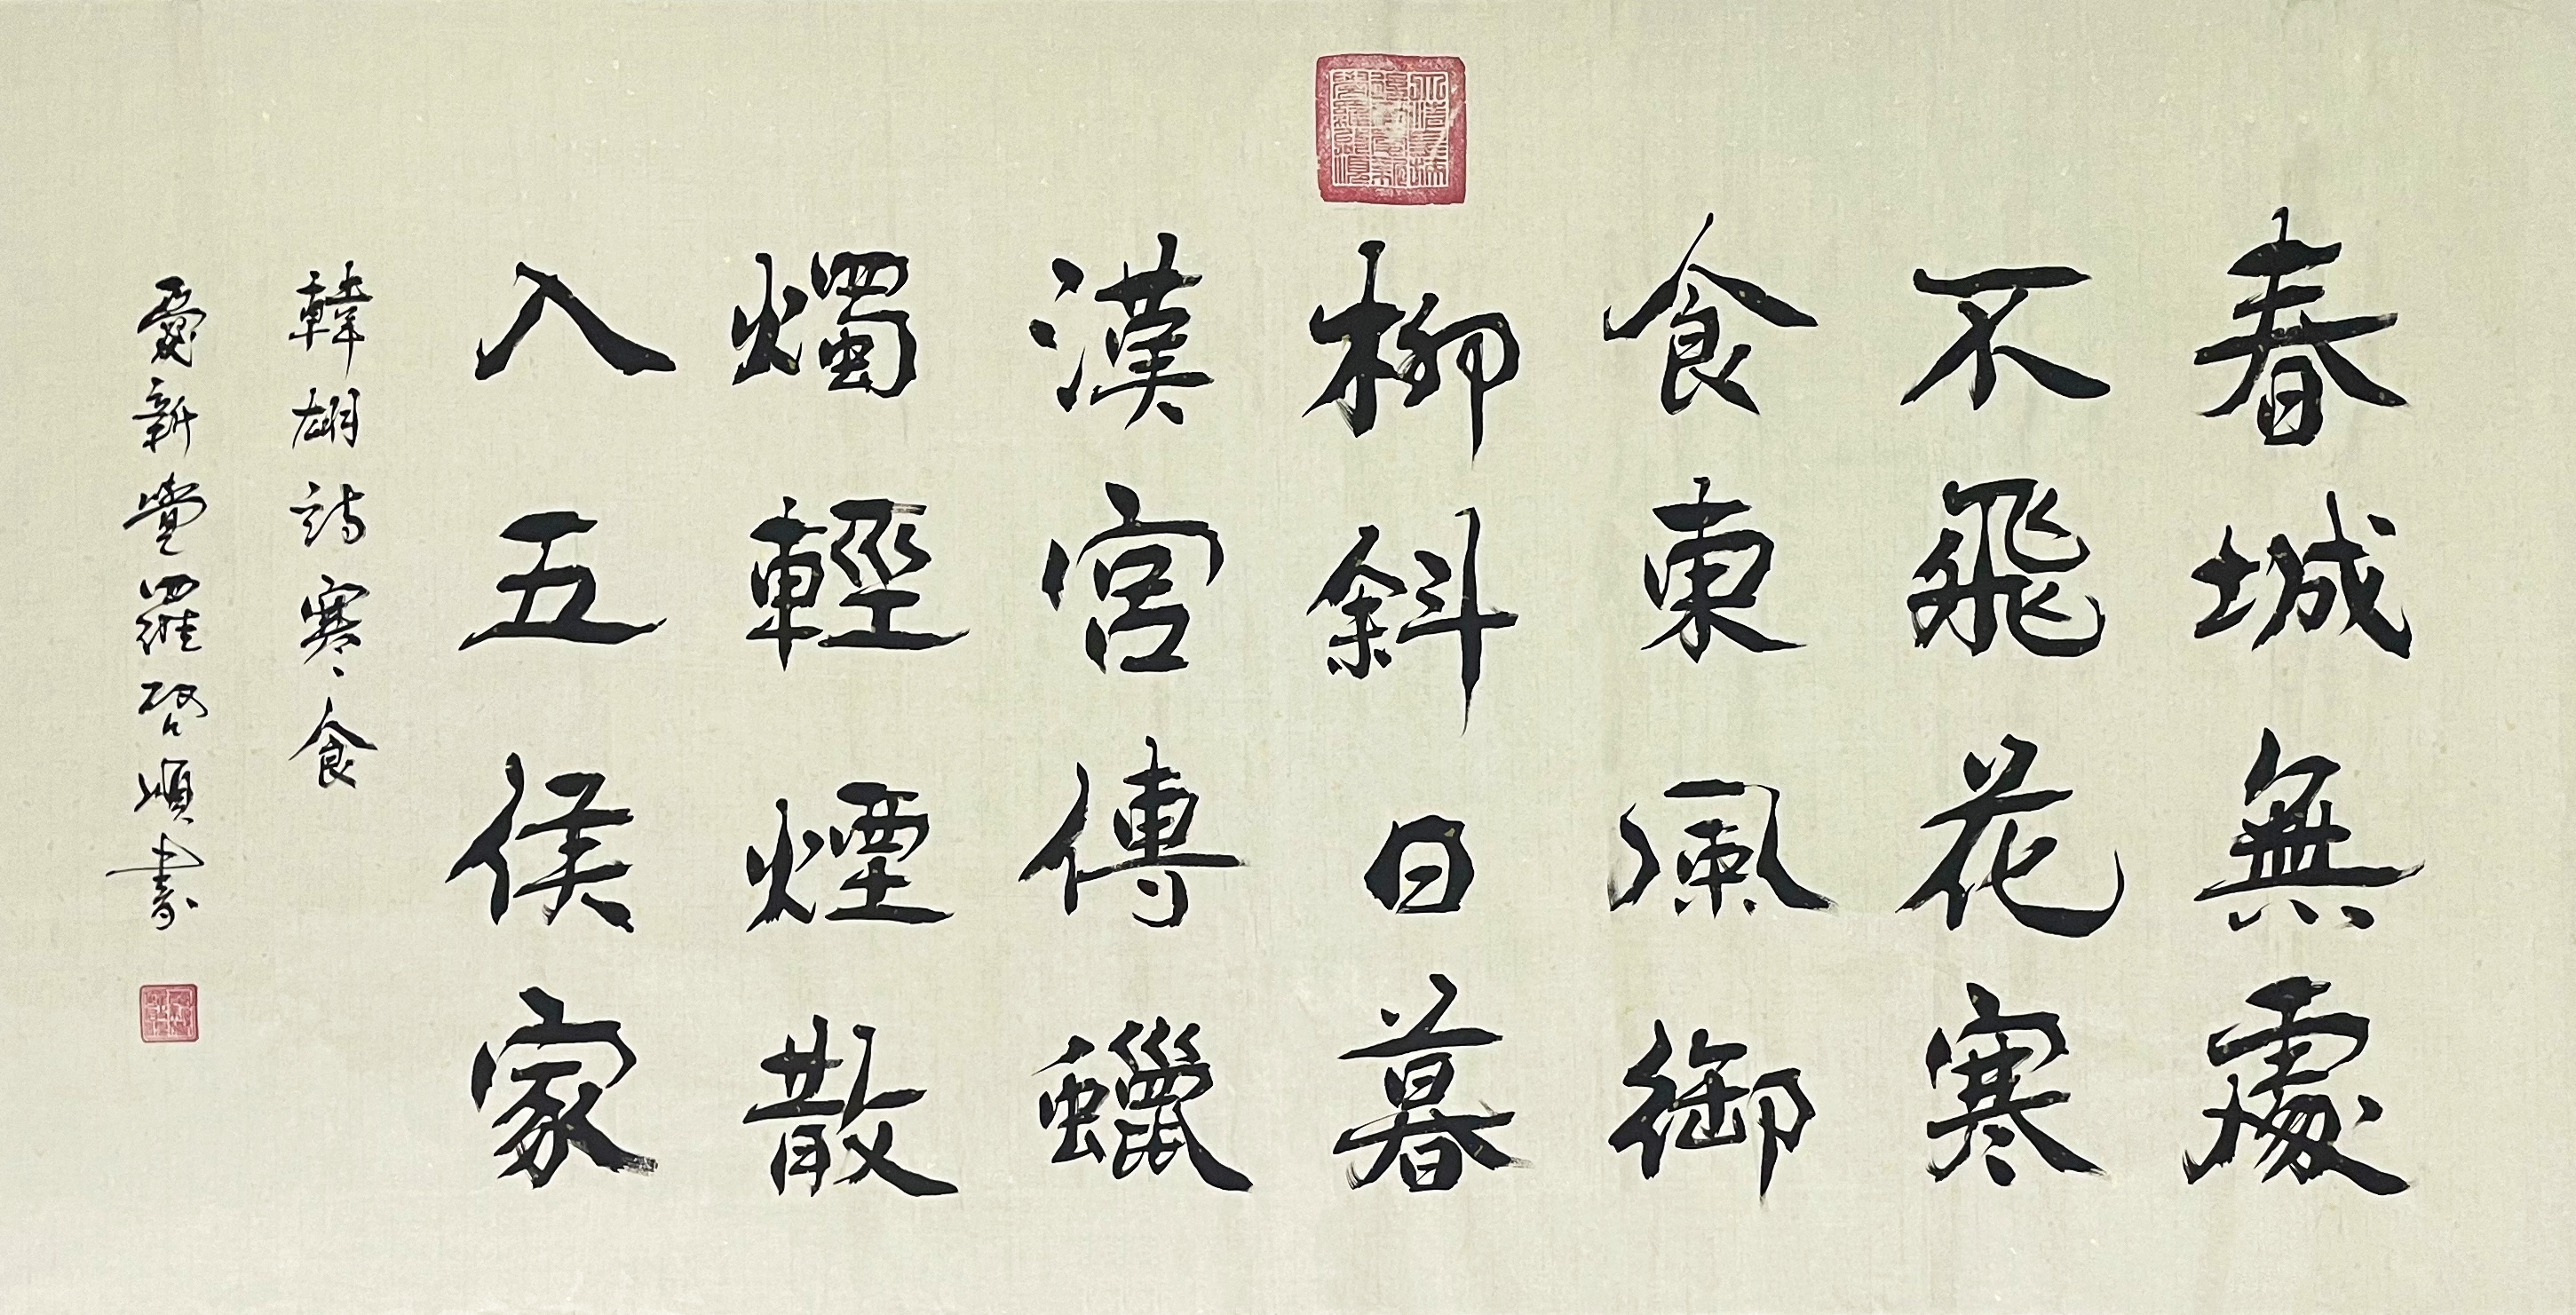 春城無處
不飛花寒
食東風御
柳斜日暮
漢宮傳蠟
燭輕煙散
入五侯家
韓翃詩寒食
愛新覺羅啓順書